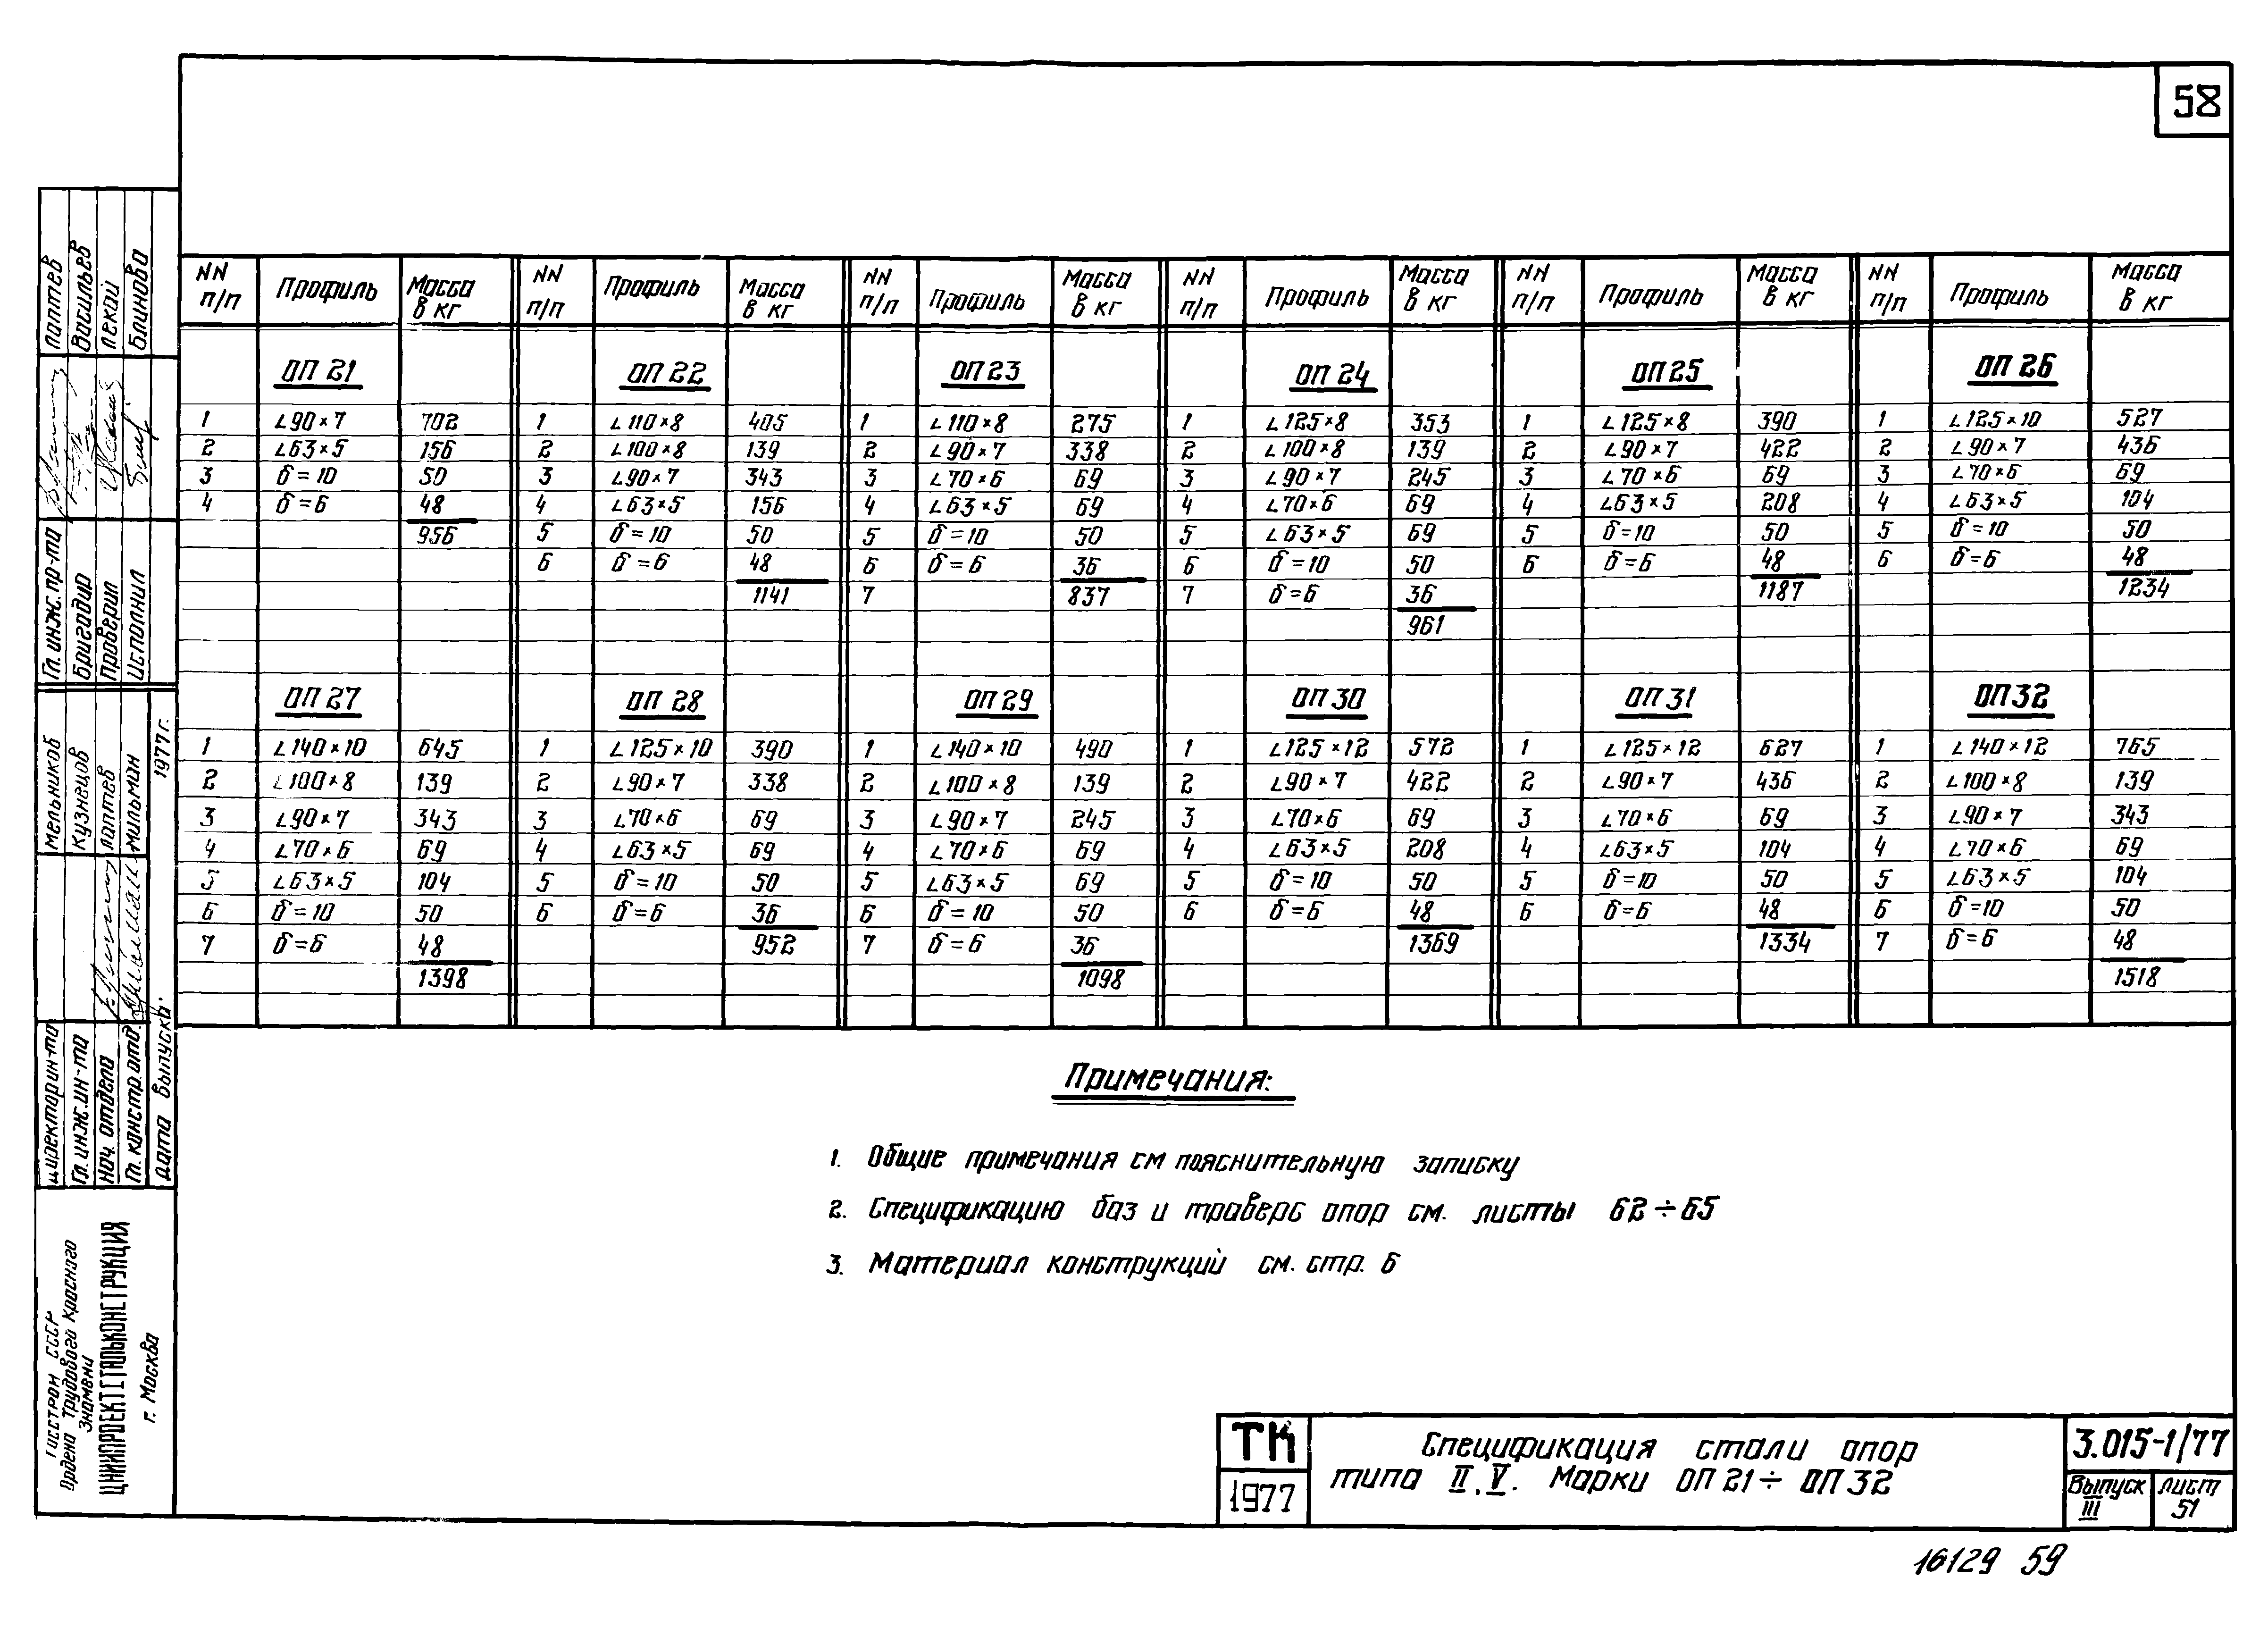 58
NN п/п Профиль Масса в кг NN п/п Профиль Масса в кг NN п/п Профиль Масса в кг NN п/п Профиль Масса в кг NN п/п Профиль Масса в кг NN п/п Профиль Масса в кг
ОП 21 ОП 22 ОП 23 ОП 24 ОП 25 ОП 26
1 ∟90×7 702 1 ∟110×8 405 1 ∟110×8 275 1 ∟125×8 353 1 ∟125×8 390 1 ∟125×10 527
2 ∟63×5 156 2 ∟100×8 139 2 ∟90×7 338 2 ∟100×8 139 2 ∟90×7 422 2 ∟90×7 436
3 δ=10 50 3 ∟90×7 343 3 ∟70×6 69 3 ∟90×7 245 3 ∟70×6 69 3 ∟70×6 69
4 δ=6 48 4 ∟63×5 156 4 ∟63×5 69 4 ∟70×6 69 4 ∟63×5 208 4 ∟63×5 104
956 5 δ=10 50 5 δ=10 50 5 ∟63×5 69 5 δ=10 50 5 δ=10 50
6 δ=6 48 6 δ=6 36 6 δ=10 50 6 δ=6 48 6 δ=6 48
1141 7 837 7 δ=6 36 1187 1234
961
ОП 27 ОП 28 ОП 29 ОП 30 ОП 31 ОП 32
1 ∟140×10 645 1 ∟125×10 390 1 ∟140×10 490 1 ∟125×12 572 1 ∟125×12 627 1 ∟140×12 765
2 ∟100×8 139 2 ∟90×7 338 2 ∟100×8 139 2 ∟90×7 422 2 ∟90×7 436 2 ∟100×8 139
3 ∟90×7 343 3 ∟70×6 69 3 ∟90×7 245 3 ∟70×6 69 3 ∟70×6 69 3 ∟90×7 343
4 ∟70×6 69 4 ∟63×5 69 4 ∟70×6 69 4 ∟63×5 208 4 ∟63×5 104 4 ∟70×6 69
5 ∟63×5 104 5 δ=10 50 5 ∟63×5 69 5 δ=10 50 5 δ=10 50 5 ∟63×5 104
6 δ=10 50 6 δ=6 36 6 δ=10 50 6 δ=6 48 6 δ=6 48 6 δ=10 50
7 δ=6 48 952 7 δ=6 36 1369 1334 7 δ=6 48
1398 1098 1518
Примечания:
1. Общие примечания см пояснительную записку
2. Спецификацию баз и траверс опор см. листы 62÷65
3. Материал конструкций см. стр. 6
ТК
1977
Спецификация стали опор
типа II, V. Марки ОП 21÷ ОП 32
3.015-1/77
Выпуск III
лист 51
16129 59
Гл. инж. пр-та Лаптев
Бригадир Васильев
Проверил Лекай
Исполнил Блинова
Директор ин-та Мельников
Гл. инж. ин-та Кузнецов
Нач. отдела Лаптев
Гл. констр. отд. Мильман
Дата выпуска. 1977г.
Госстрой СССР
Ордена Трудового Красного
Знамени
ЦНИИПРОЕКТСТАЛЬКОНСТРУКЦИЯ
г. Москва